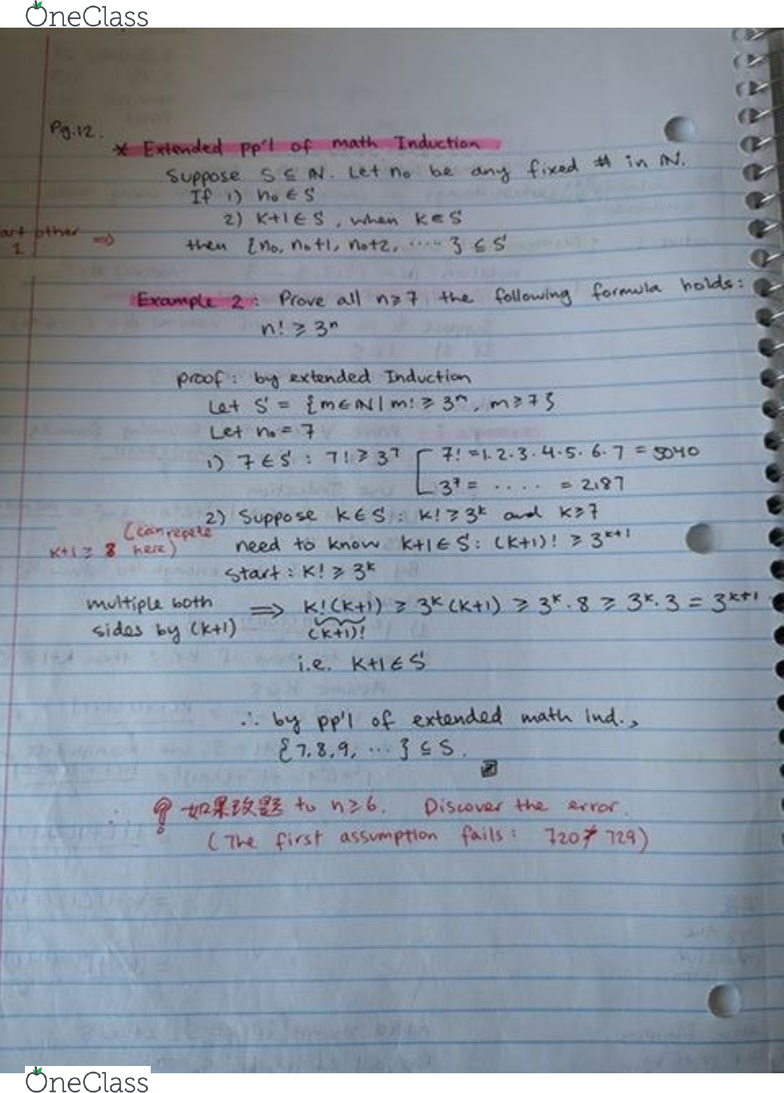 OneClass
Pg.12.
* Extended pp'l of math Induction
Suppose S ⊆ ℕ. Let n₀ be any fixed # in ℕ.
If 1) n₀ ∈ S
2) k+1 ∈ S, when k ∈ S
art other 1 ⇒ then {n₀, n₀+1, n₀+2, ....} ⊆ S
Example 2: Prove all n≥7 the following formula holds:
n! ≥ 3ⁿ
proof: by extended Induction
Let S = {m∈ℕ | m! ≥ 3ᵐ, m≥7}
Let n₀ = 7
1) 7 ∈ S : 7! ≥ 3⁷ [ 7! = 1.2.3.4.5.6.7 = 5040
3⁷ = ..... = 2187
2) Suppose k ∈ S : k! ≥ 3ᵏ and k≥7
k+1 ≥ 8 (can repete here) need to know k+1 ∈ S : (k+1)! ≥ 3ᵏ⁺¹
start : k! ≥ 3ᵏ
multiple both sides by (k+1) ⇒ k!(k+1) ≥ 3ᵏ(k+1) ≥ 3ᵏ.8 ≥ 3ᵏ.3 = 3ᵏ⁺¹
(k+1)!
i.e. k+1 ∈ S
∴ by pp'l of extended math ind.,
{7,8,9, ...} ⊆ S.
如果改题 to n≥6. Discover the error.
(The first assumption fails: 720 ≱ 729)
OneClass